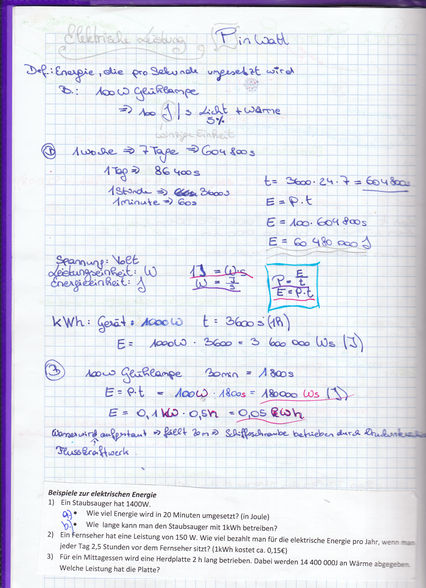 Elektrische Leistung P in Watt
Def.: Energie, die pro Sekunde umgesetzt wird
B.: 100W Glühlampe
⇒ 100 J/s Licht + Wärme
5%
① 1 Woche ⇒ 7 Tage ⇒ 604 800s
1 Tag ⇒ 86 400s
1 Stunde ⇒ 3600s
1 minute ⇒ 60s
t = 3600·24·7 = 604 800s
E = P·t
E = 100·604 800s
E = 60 480 000 J
Spannung: Volt
Leistungseinheit: W
Energieeinheit: J
1J = Ws
W = J/s
P = E/t
E = P·t
kWh: Gerät: 1000W t = 3600s (1h)
E = 1000W · 3600 = 3 600 000 Ws (J)
③ 100W Glühlampe 30min = 1800s
E = P·t = 100W · 1800s = 180000 Ws (J)
E = 0,1kW · 0,5h = 0,05 kWh
Wasser wird aufgestaut ⇒ fällt ⇒ Schiffschraube betrieben durch
Flusskraftwerk
Beispiele zur elektrischen Energie
1) Ein Staubsauger hat 1400W.
a) • Wie viel Energie wird in 20 Minuten umgesetzt? (in Joule)
b) • Wie lange kann man den Staubsauger mit 1kWh betreiben?
2) Ein Fernseher hat eine Leistung von 150 W. Wie viel bezahlt man für die elektrische Energie pro Jahr, wenn man
jeder Tag 2,5 Stunden vor dem Fernseher sitzt? (1kWh kostet ca. 0,15€)
3) Für ein Mittagessen wird eine Herdplatte 2 h lang betrieben. Dabei werden 14 400 000J an Wärme abgegeben.
Welche Leistung hat die Platte?